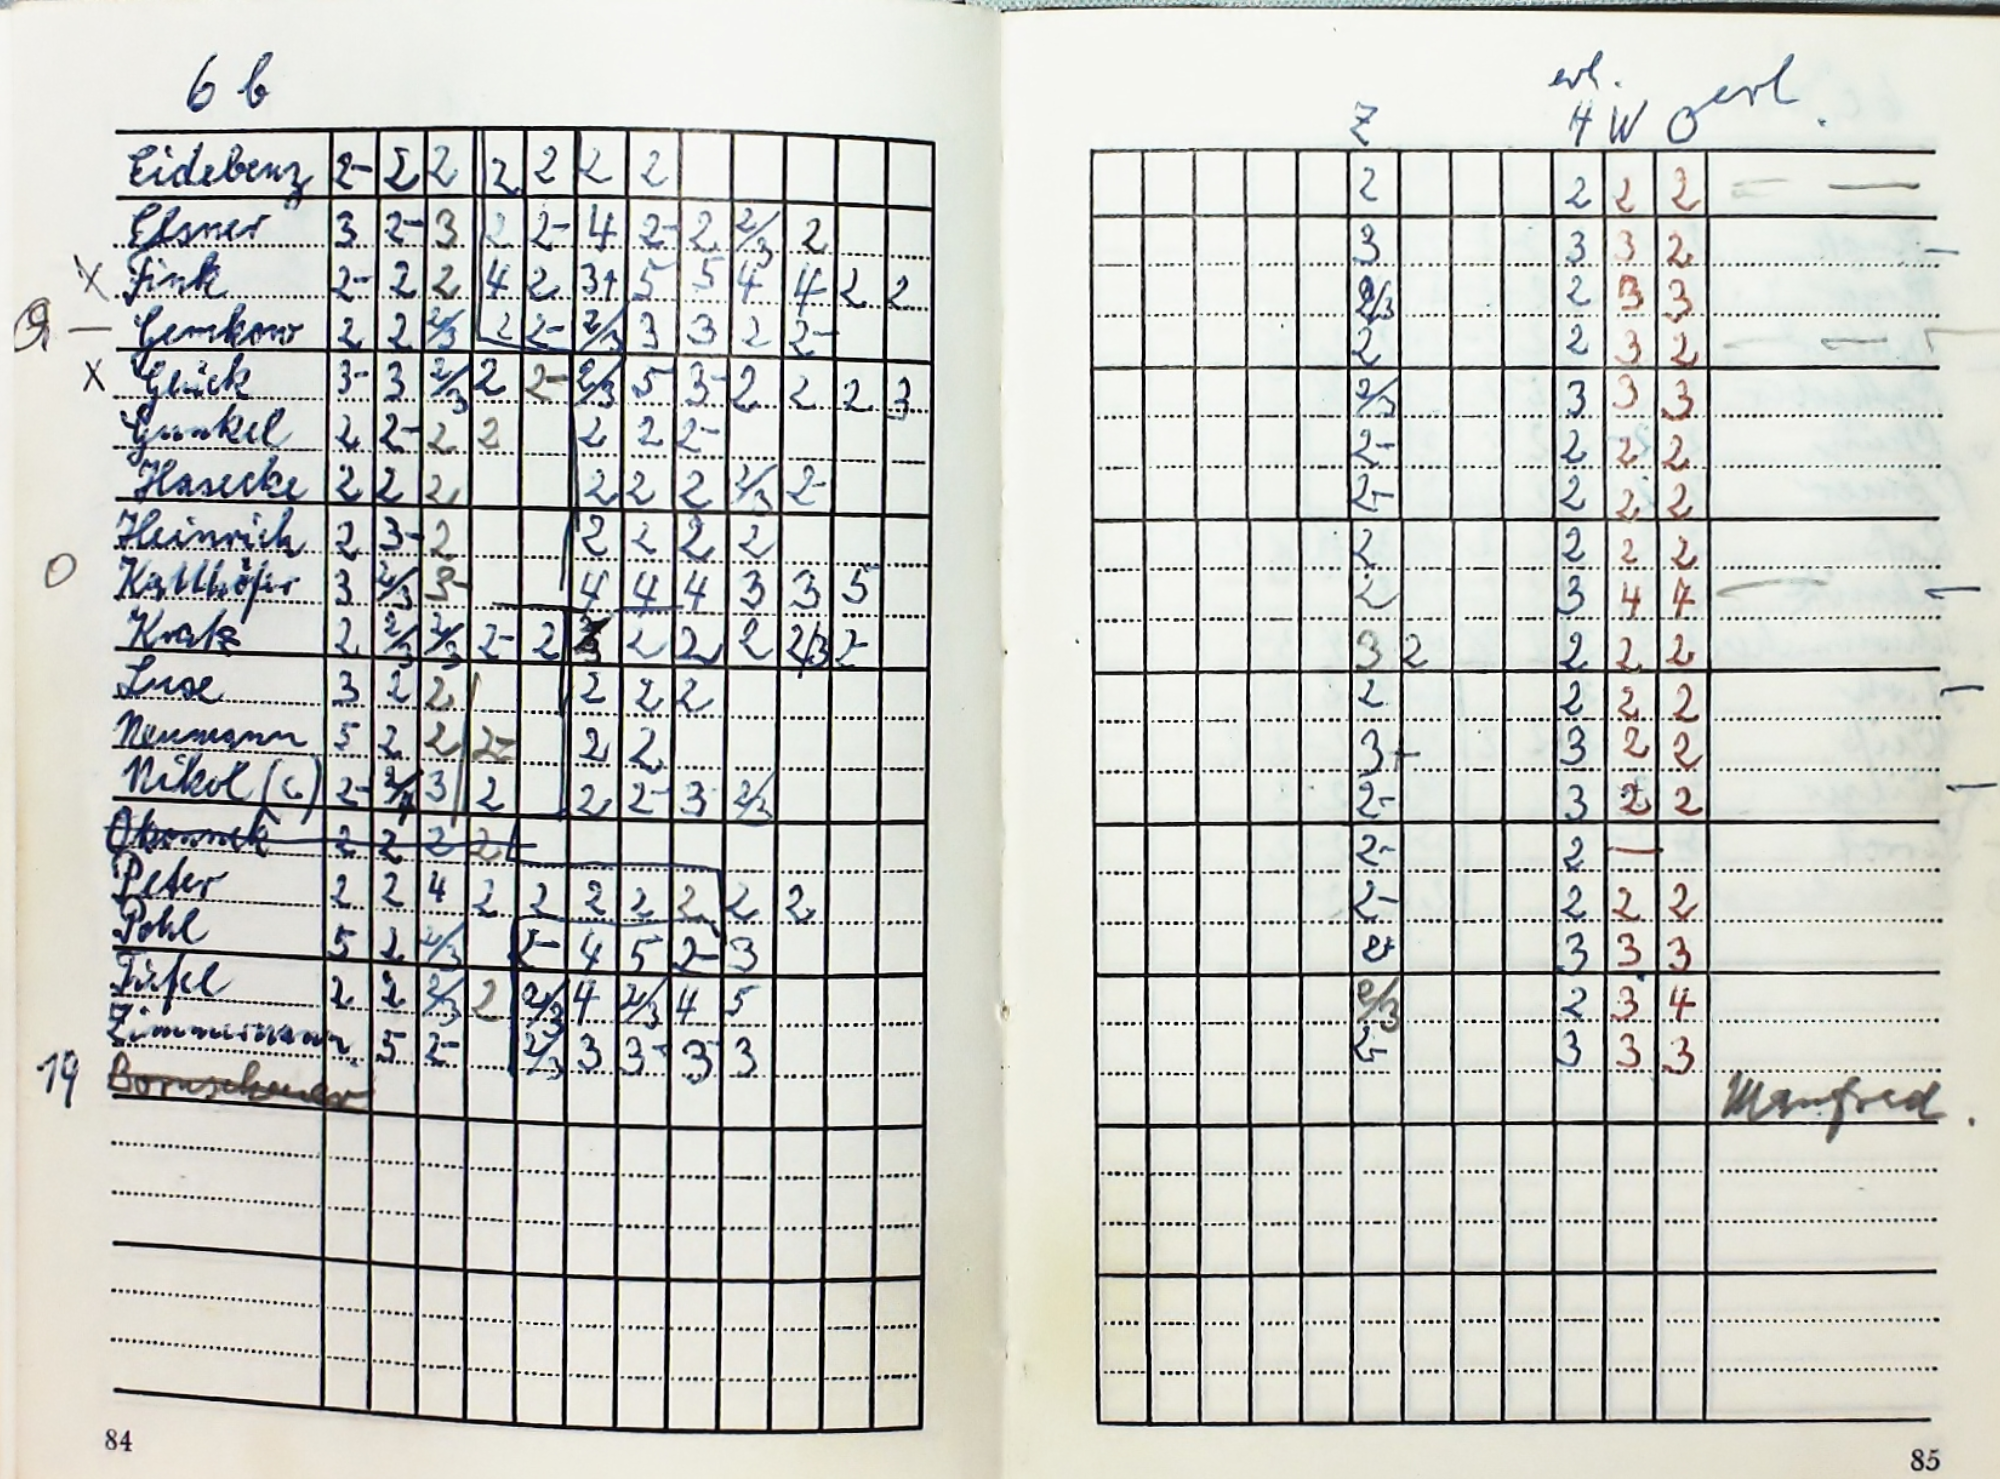 6 b
Eidebenz 2- 2 2 2 2 2 2
Elsner 3 2- 3 2 2- 4 2- 2 2/3 2
X Fink 2- 2 2 4 2 3+ 5 5 4 4 2 2
— Gemkow 2 2 2/3 2 2- 2/3 3 3 2 2-
X Glück 3- 3 2/3 2 2- 2/3 5 3- 2 2 2 3
Gunkel 2 2- 2 2 2 2 2-
Hasecke 2 2 2 2 2 2 2/3 2-
Heinrich 2 3- 2 2 2 2 2
O Katthöfer 3 2/3 3- 4 4 4 3 3 5
Kratz 2 2/3 2/3 2- 2 2 2 2 2/3 2-
Luse 3 2 2 2 2 2
Neumann 5 2 2 2- 2 2
Nikol (c) 2- 3 2 2 2- 3 2/3
2 2 2 2
Peter 2 2 4 2 2 2 2 2 2 2
Pohl 5 2 2/3 2- 4 5 2- 3
2 2 2/3 2 2/3 4 2/3 4 5
Zimmermann 5 2- 2/3 3 3- 3 3
19 Bornscheuer
84
erl.
Z H W O erl.
2 2 2 2
3 3 3 2
2/3 2 3 3
2 2 3 2
2/3 3 3 3
2- 2 2 2
2- 2 2 2
2 2 2 2
2 3 4 4
3 2 2 2 2
2 2 2 2
3+ 3 2 2
2- 3 2 2
2- 2 —
2- 2 2 2
3 3 3
2/3 2 3 4
2- 3 3 3
Manfred
85